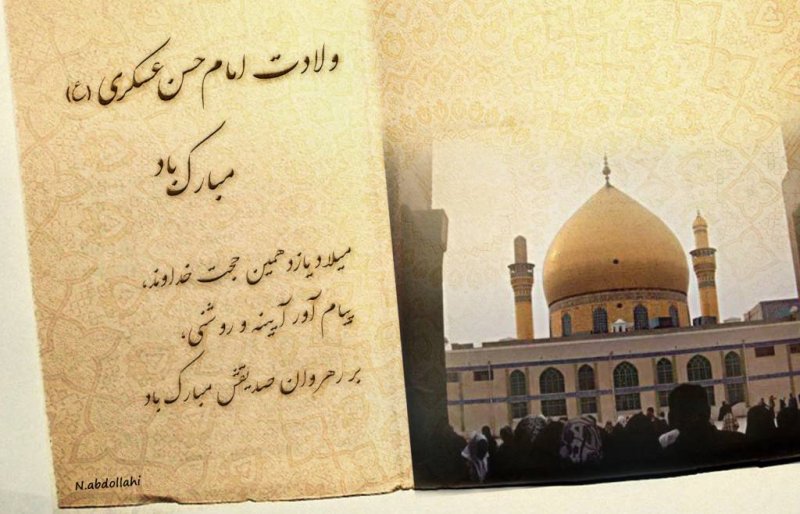 ولادت امام حسن عسکری (ع)
مبارک باد
میلاد یازدهمین حجت خداوند،
پیام آور آیینه و روشنی،
بر رهروان صدیقش مبارک باد
N.abdollahi